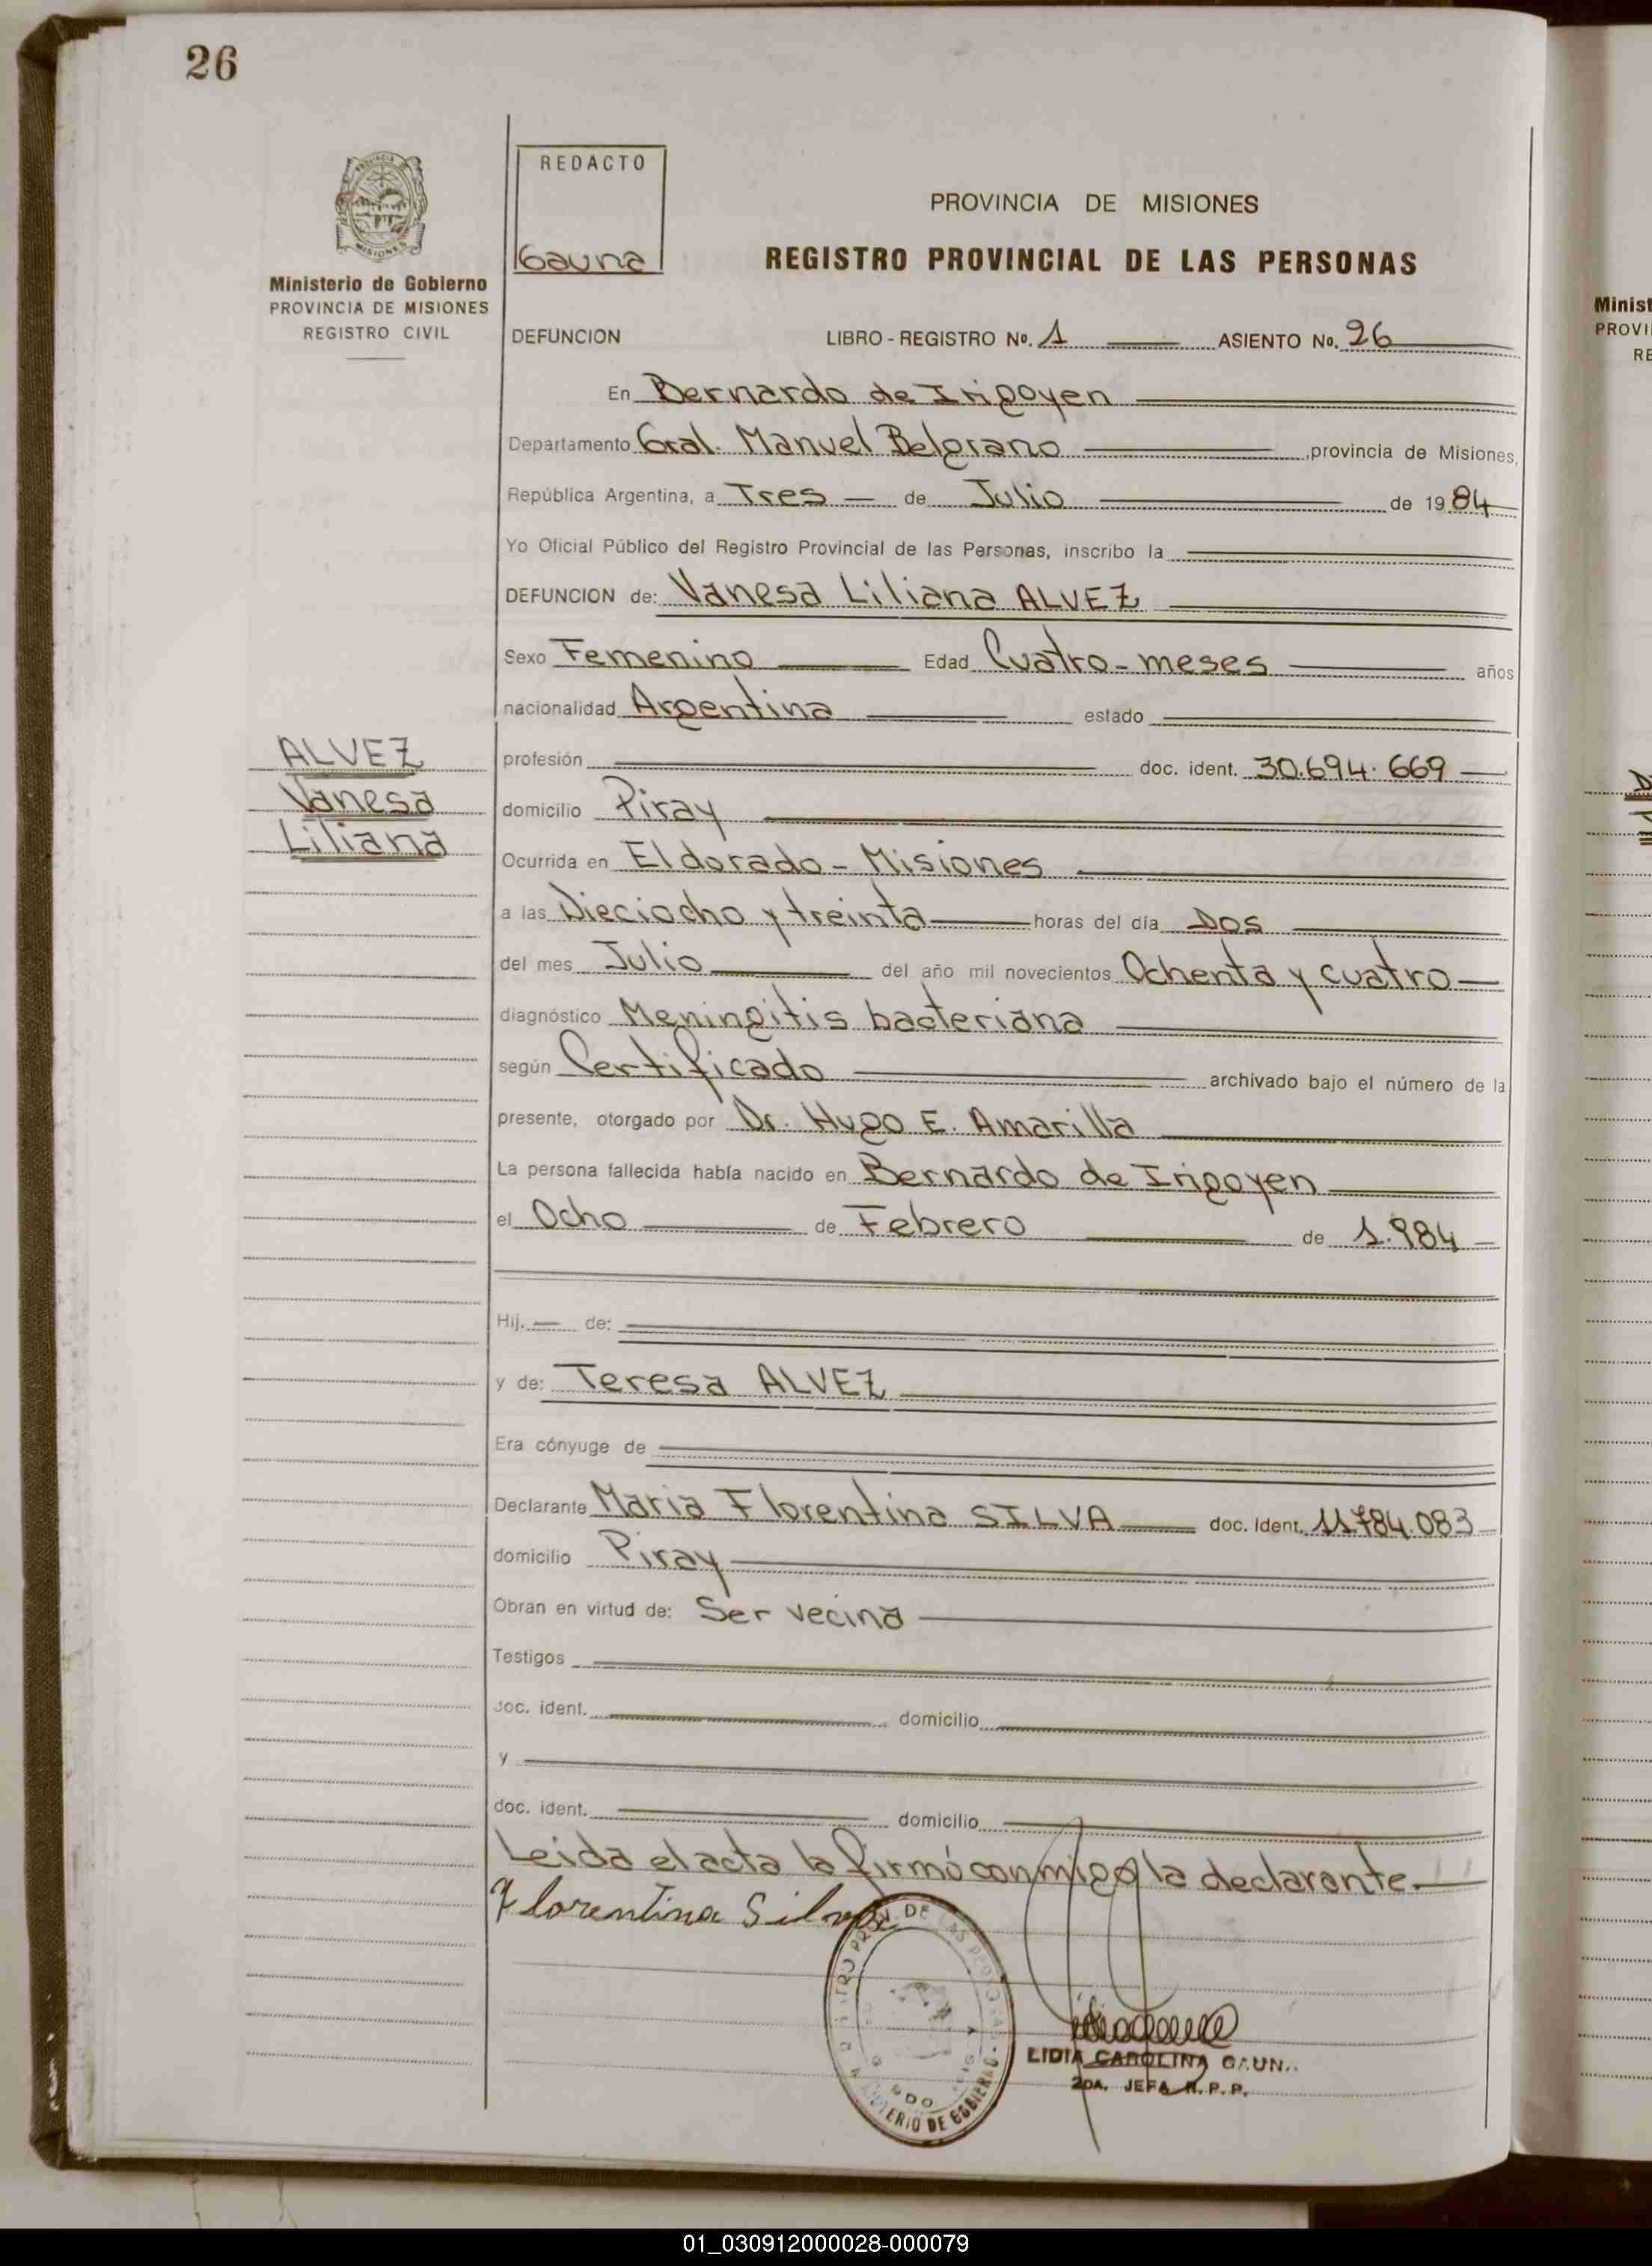 26
REDACTO
Gauna
MISIONES
Ministerio de Gobierno
PROVINCIA DE MISIONES
REGISTRO CIVIL
PROVINCIA DE MISIONES
REGISTRO PROVINCIAL DE LAS PERSONAS
DEFUNCION LIBRO - REGISTRO Nº. 1 ASIENTO No. 26
En Bernardo de Irigoyen
Departamento Gral. Manuel Belgrano provincia de Misiones,
República Argentina, a Tres de Julio de 1984
Yo Oficial Público del Registro Provincial de las Personas, inscribo la
DEFUNCION de: Vanesa Liliana ALVEZ
Sexo Femenino Edad Cuatro-meses años
nacionalidad Argentina estado
ALVEZ
Vanesa
Liliana
profesión doc. ident. 30.694.669
domicilio Piray
Ocurrida en Eldorado - Misiones
a las Dieciocho y treinta horas del día Dos
del mes Julio del año mil novecientos Ochenta y cuatro
diagnóstico Meningitis bacteriana
según Certificado archivado bajo el número de la
presente, otorgado por Dr. Hugo E. Amarilla
La persona fallecida había nacido en Bernardo de Irigoyen
el Ocho de Febrero de 1.984
Hij. de:
y de: Teresa ALVEZ
Era cónyuge de
Declarante Maria Florentina SILVA doc. Ident. 11784.083
domicilio Piray
Obran en virtud de: Ser vecina
Testigos
doc. ident. domicilio
y
doc. ident. domicilio
Leida el acta la firmó conmigo la declarante.
Florentina Silva
LIDIA CAROLINA GAUN
2DA. JEFA R. P. P.
Minist
PROVI
RE
01_030912000028-000079